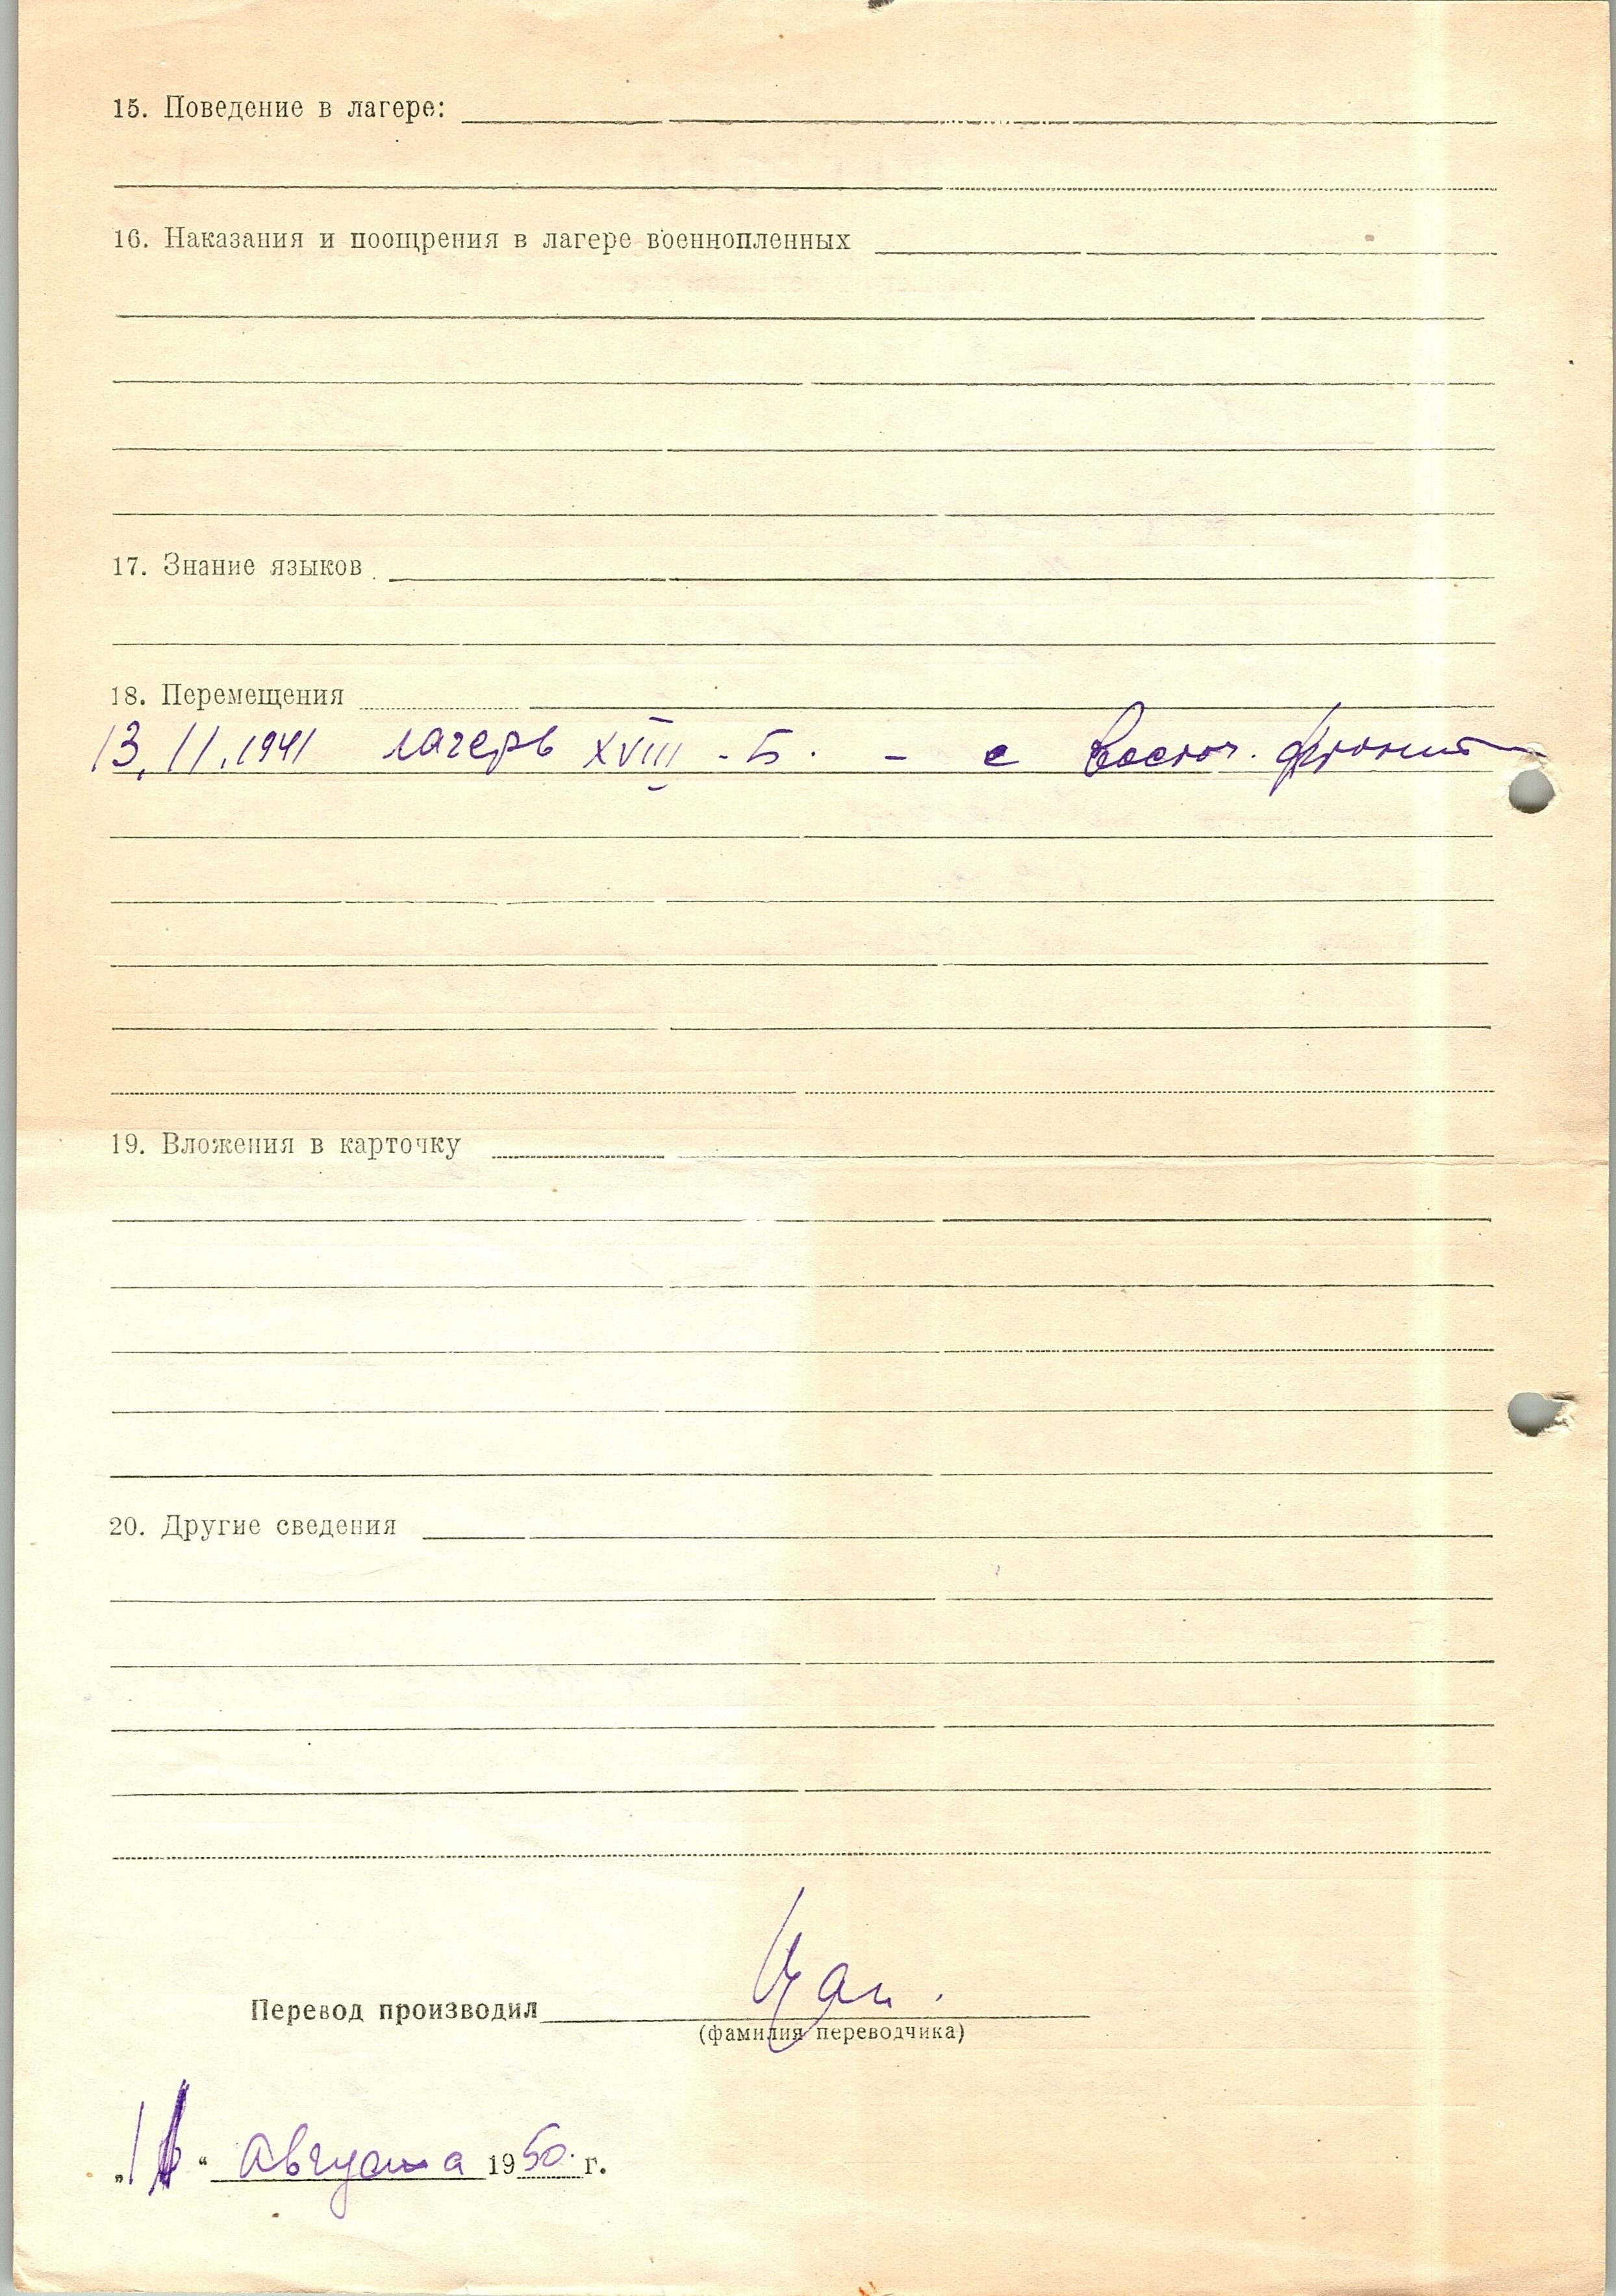 15. Поведение в лагере:
16. Наказания и поощрения в лагере военнопленных
17. Знание языков
18. Перемещения
13.11.1941 лагерь XVIII - Б. - с Восточ. фронта
19. Вложения в карточку
20. Другие сведения
Перевод производил
(фамилия переводчика)
" " Августа 1950 г.